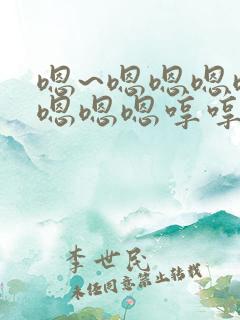 嗯~嗯嗯嗯
嗯嗯嗯哼哼
李世民
未经同意禁止转载